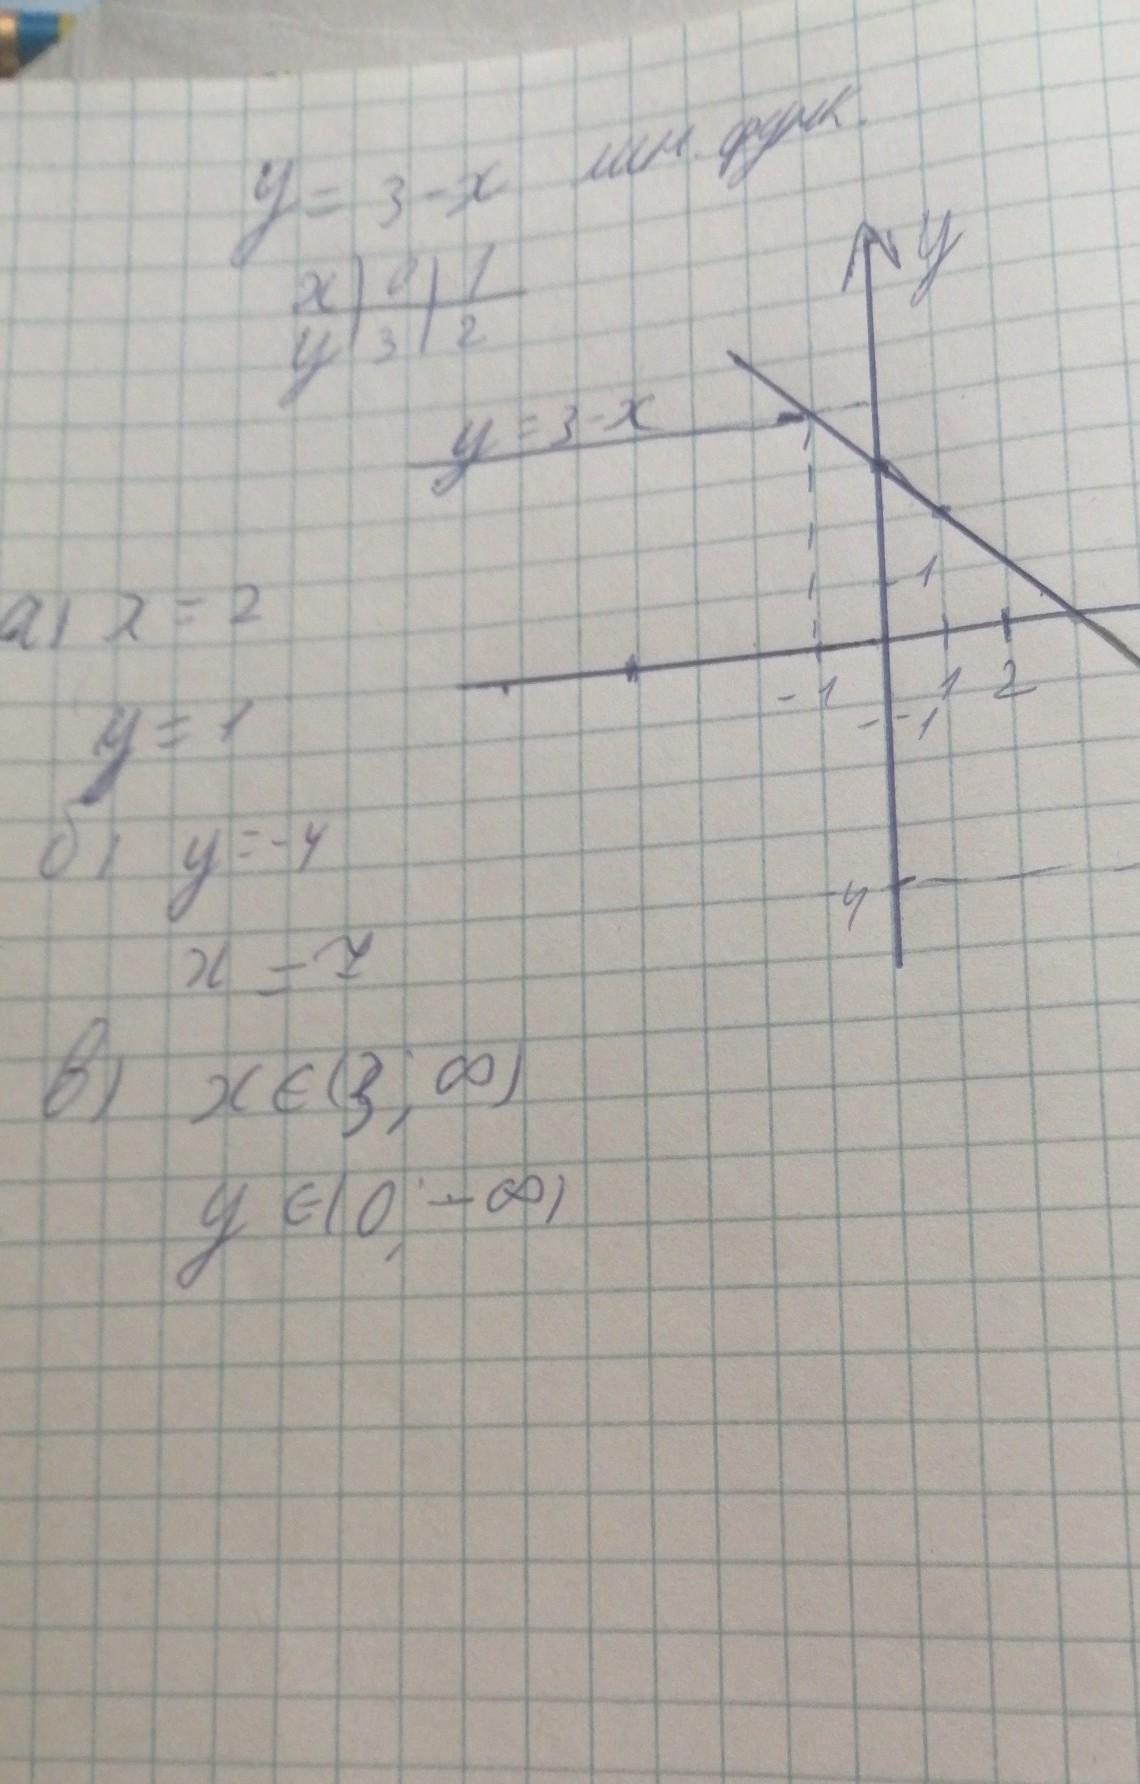 y = 3 - x лин. функ.
x | 0 | 1
y | 3 | 2
y
y = 3 - x
1
а) x = 2
-1 1 2
-1
y = 1
б) y = -4
-4
x = 7
в) x ∈ (3; ∞)
y ∈ (0; -∞)